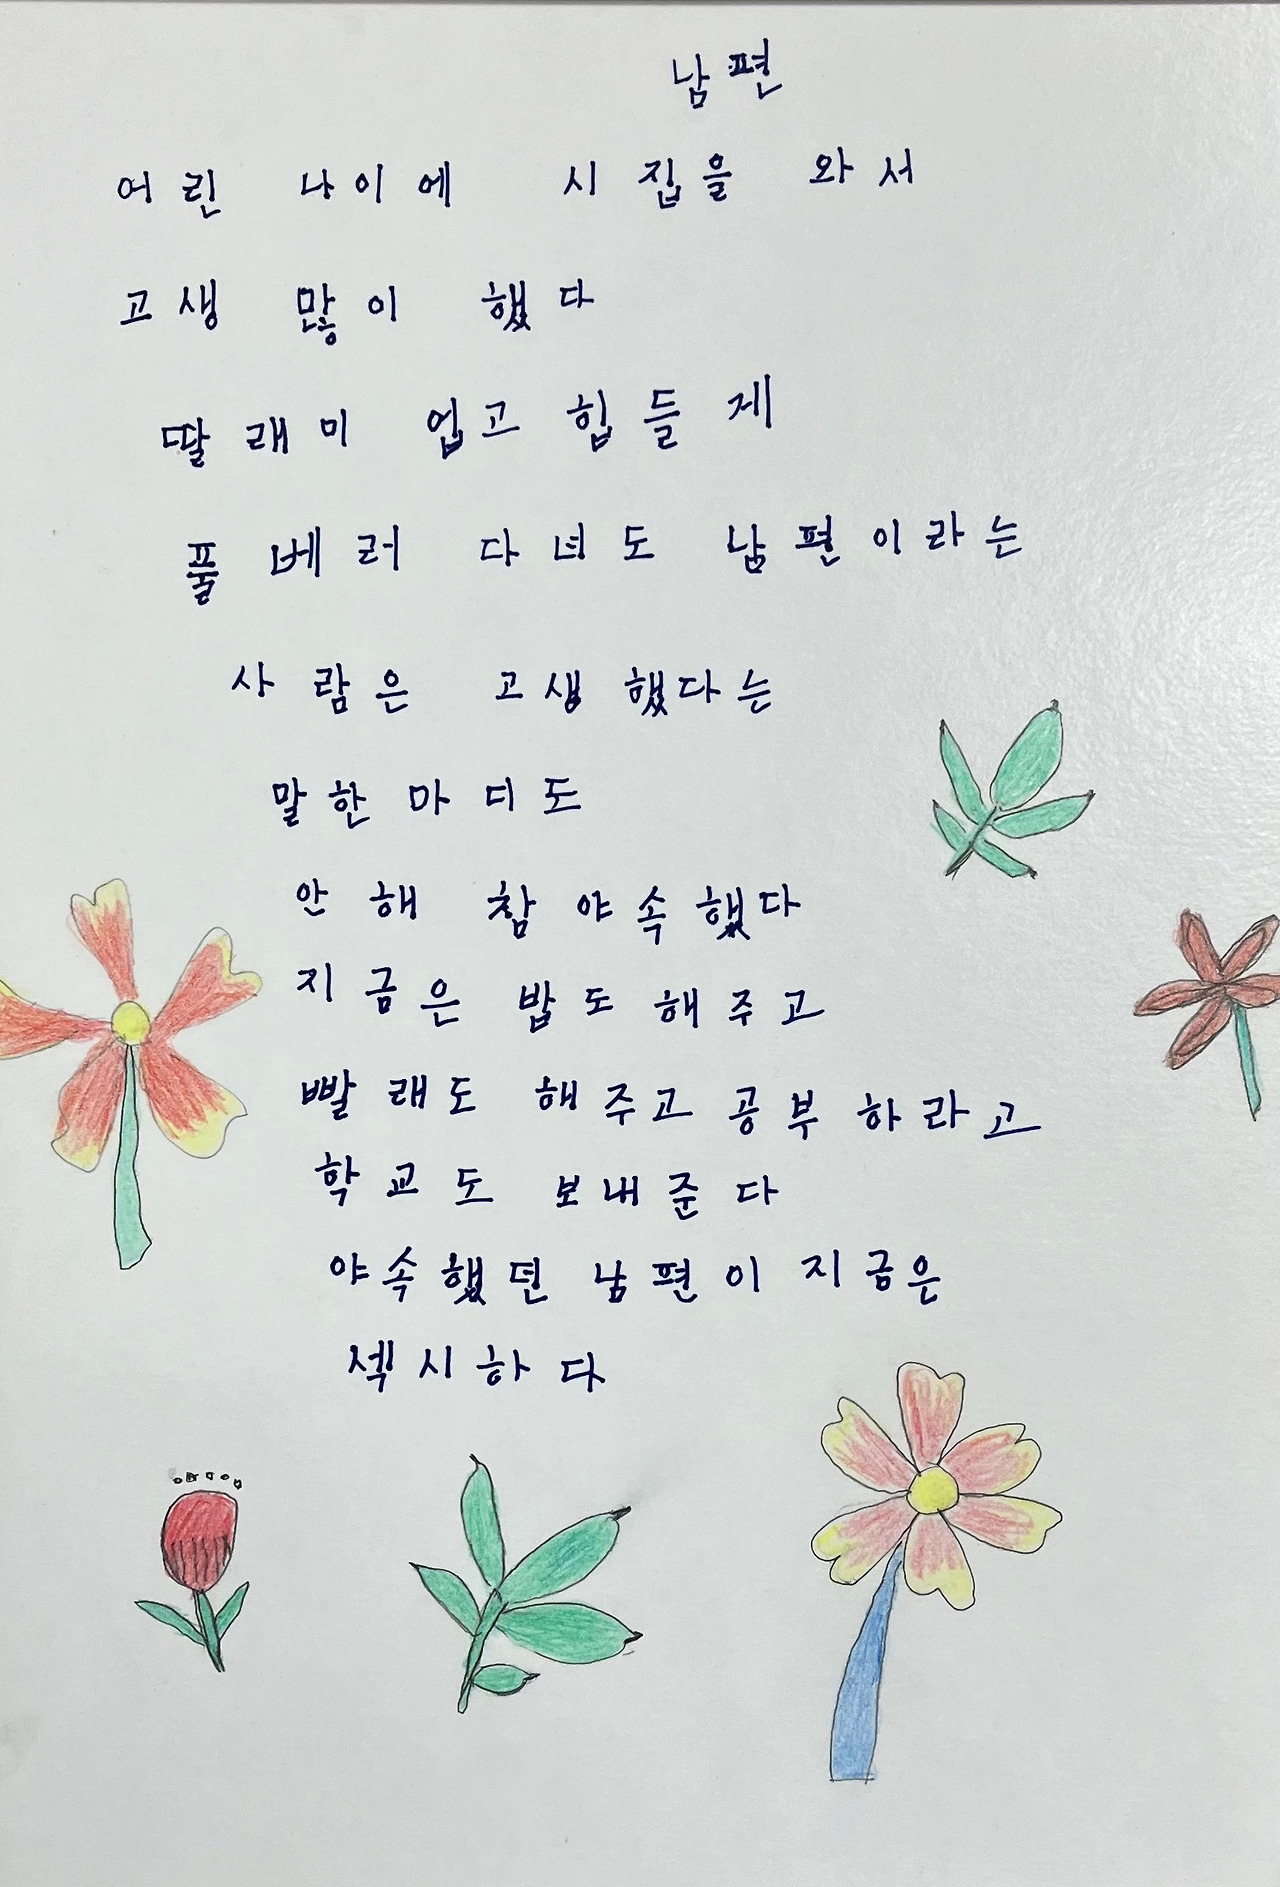 남편
어린 나이에 시집을 와서
고생 많이 했다
딸래미 업고 힙들게
풀베러 다녀도 남편이라는
사람은 고생했다는
말한마디도
안해 참 야속했다
지금은 밥도 해주고
빨래도 해주고 공부하라고
학교도 보내준다
야속했던 남편이 지금은
섹시하다